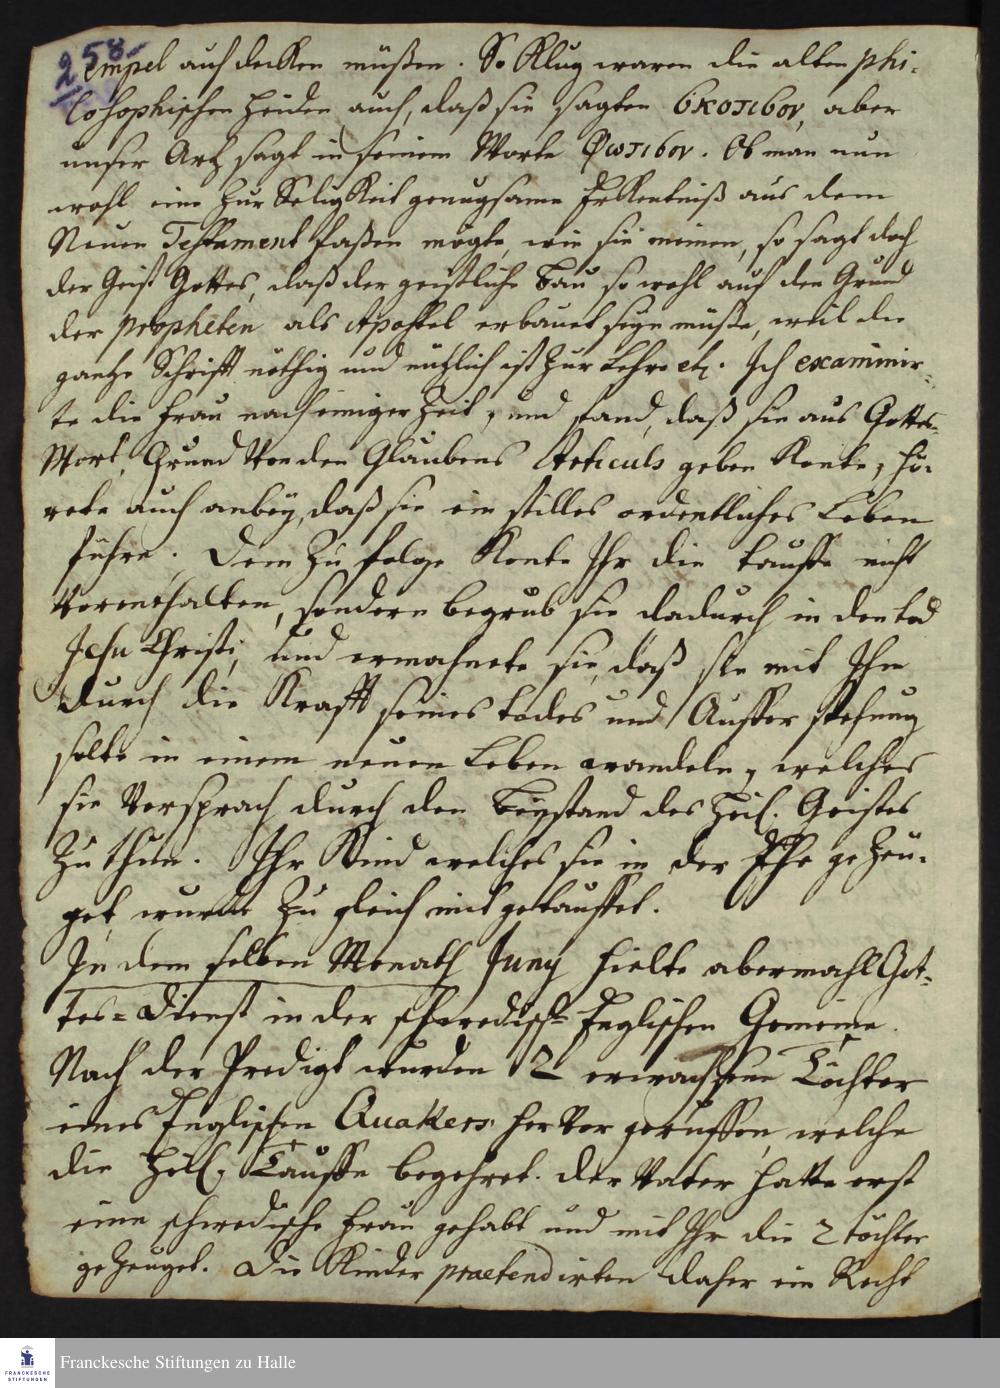 258.
empel aufdecken müßen. So Klug waren die alten phi-
losophischen Heiden auch, daß sie sagten σκοτισον, aber
unser Artz sagt in seinem Worte Φωτισον. Ob man nun
wohl eine zur Seligkeit genugsame Erkentniß aus dem
Neuen Testament faßen mögte, wie sie meinen, so sagt doch
der Geist Gottes, daß der geistliche Bau so wohl auf den Grund
der Propheten als Apostel erbauet seyn müße, weil die
gantze Schrifft nöthig und nützlich ist zur Lehre etc. Ich examinir-
te die Frau nach einiger Zeit, und fand, daß sie aus Gottes-
Wort, Grund von den Glaubens Articuls geben Konte, hö-
rete auch anbey, daß sie ein stilles ordentliches Leben
führe. Dem zu folge Konte Ihr die Tauffe nicht
vorenthalten, sondern begrub sie dadurch in den Tod
Jesu Christi, und ermahnete sie, daß sie mit Ihm
durch die Krafft seines Todes und Aufferstehung
solte in einem neuen Leben wandeln, welches
sie versprach durch den Beystand des Heil. Geistes
zu thun. Ihr Kind welches sie in der Ehe gezeu-
get, wurde zu gleich mit getauffet.
In dem selben Monath Juny hielte abermahl Got-
tes-Dienst in der schwedisch Englischen Gemeine.
Nach der Predigt wurden 2 erwachsene Töchter
eines Englischen Quakers hervor geruffen, welche
die Heil. Tauffe begehret. Der Vater hatte erst
eine schwedische Frau gehabt und mit Ihr die 2 Töchter
gezeuget. Die Kinder praetendirten daher ein Recht
FRANCKESCHE
STIFTUNGEN
Franckesche Stiftungen zu Halle